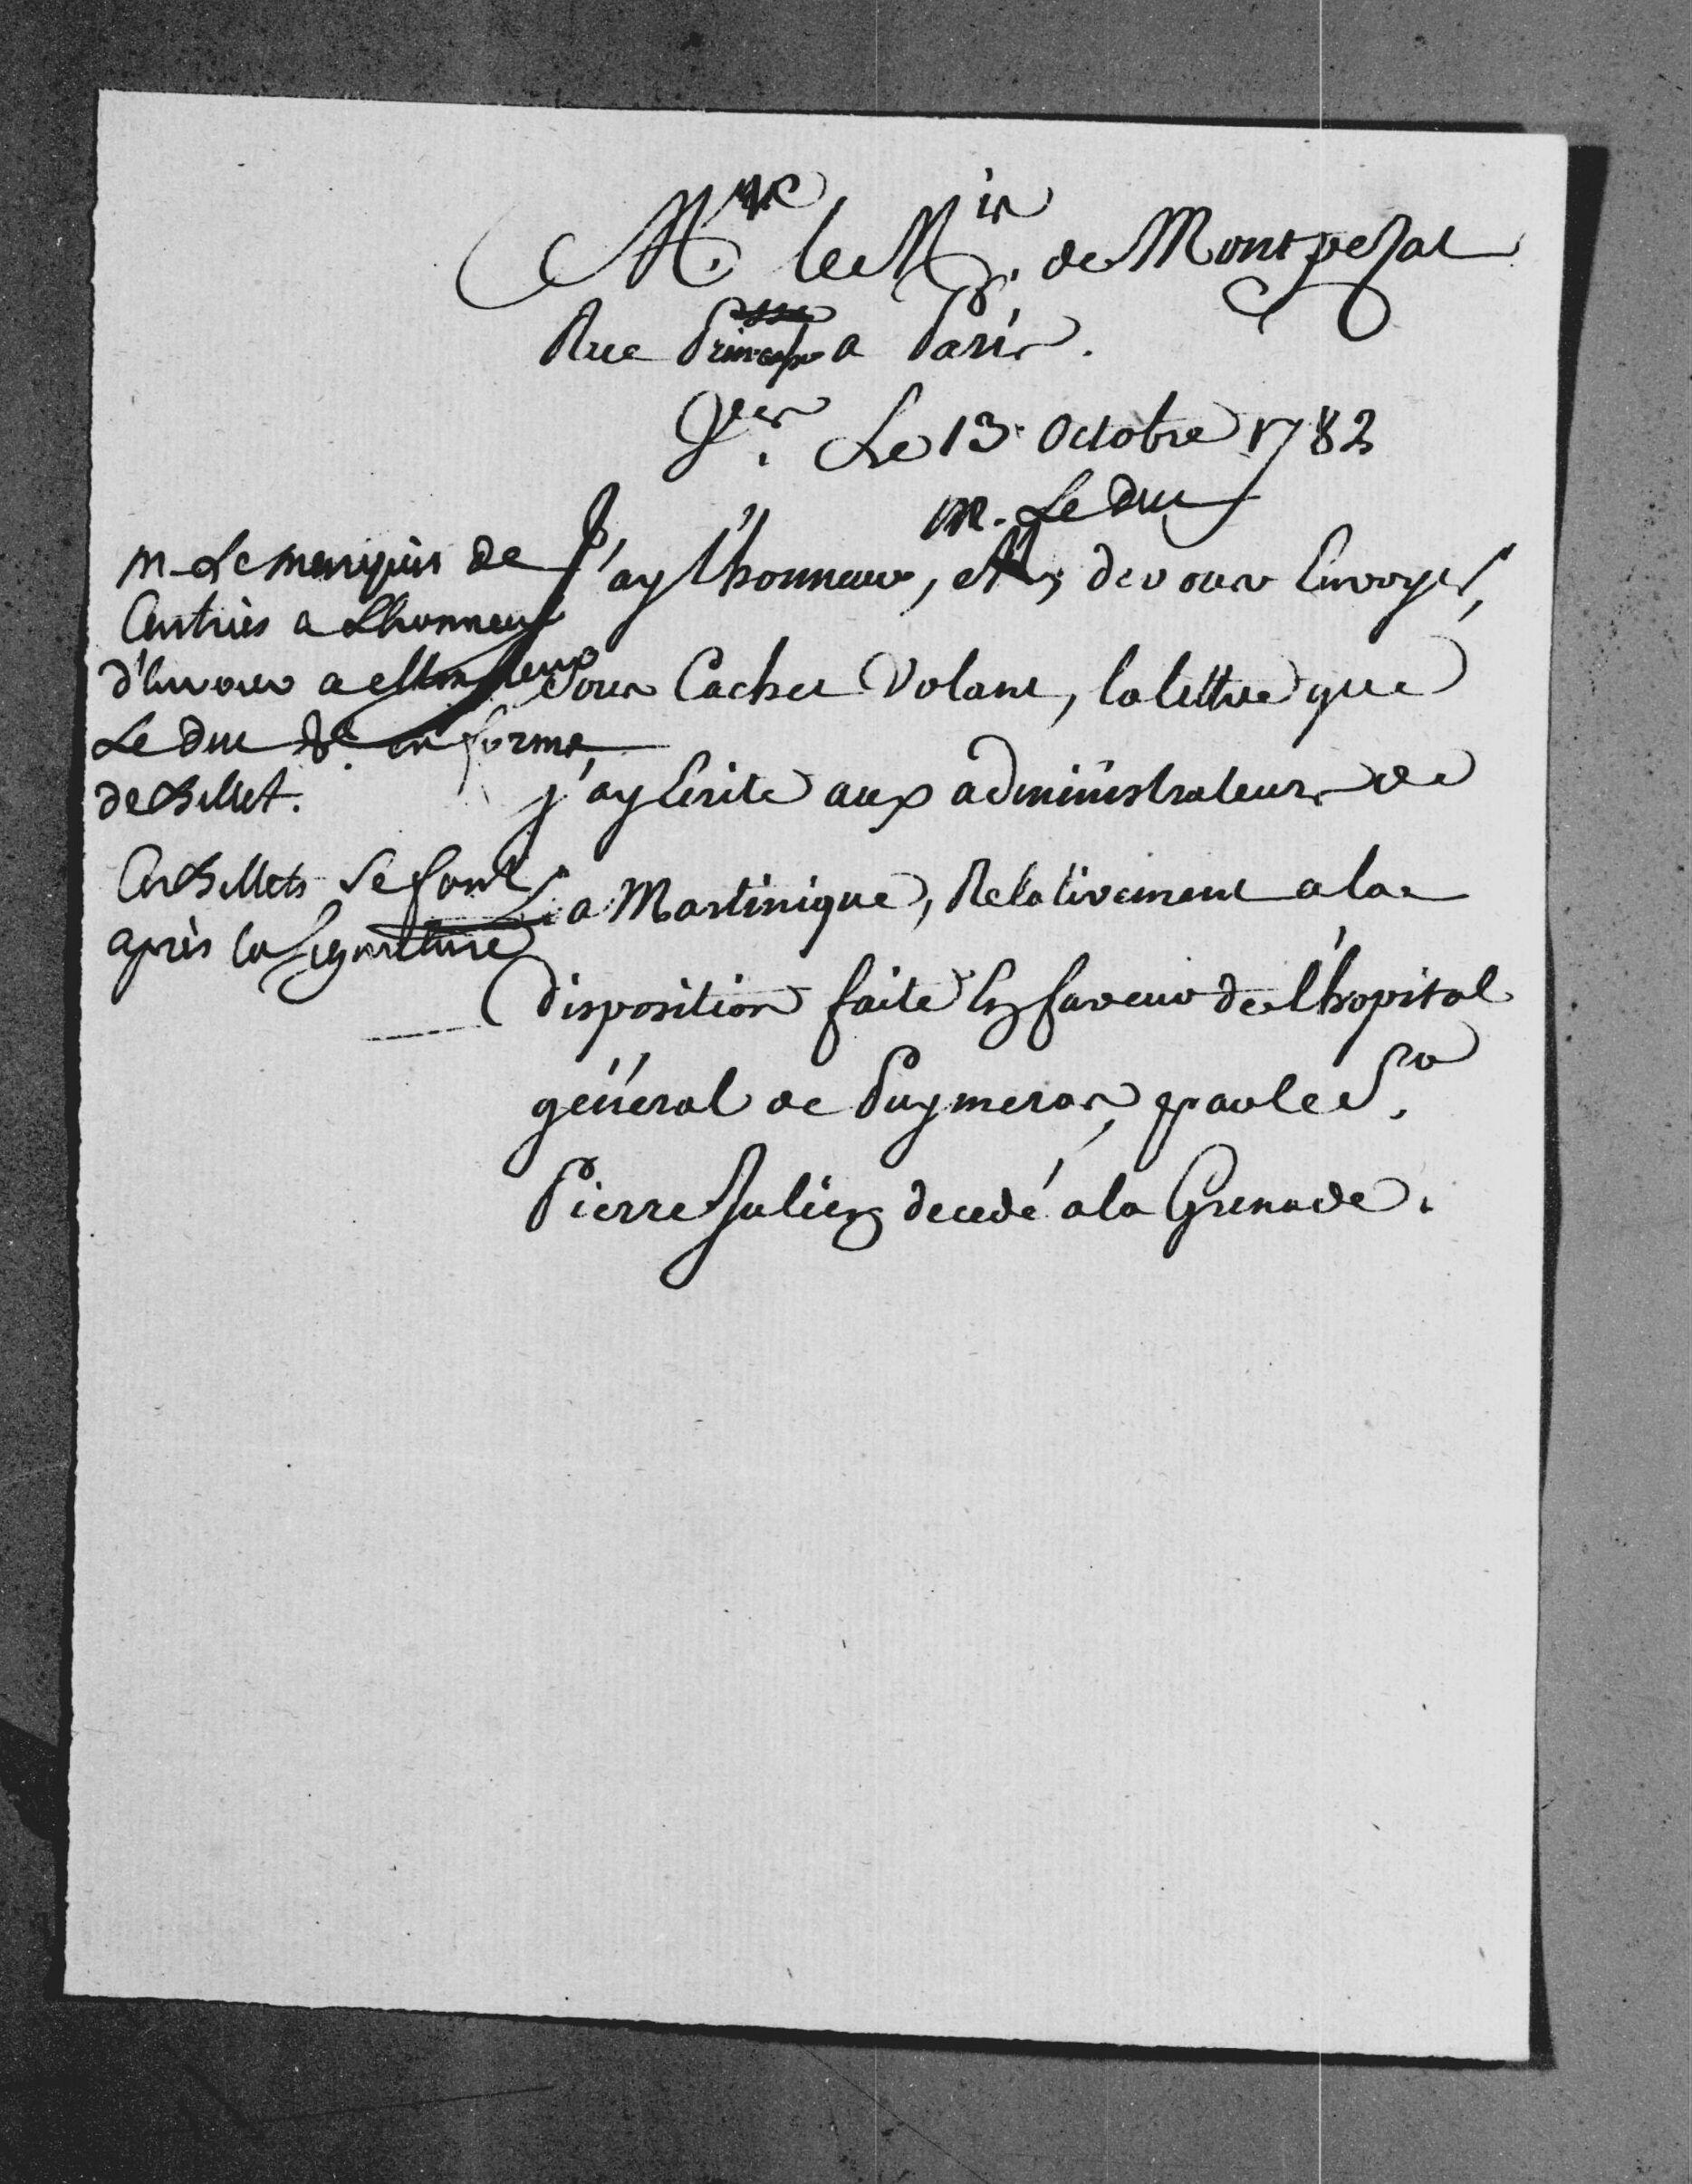 M. le M.is de Montpezat
Rue Princesse a Paris.
V.lles Le 13 Octobre 1782
M. Le Duc
J'ay l'honneur, M, de vous Envoyer,
sous Cachet Volant, la lettre que
j'ay Ecrite aux administrateurs de
La Martinique, Relativement a la
disposition faite En faveur de l'hopital
général de Puymeras, par le S.r
Pierre Julien decedé a la Grenade.
M. Le Marquis de
Castries a L'honneur
d'Envoier a Monsieur
Le Duc &c. en forme
de Billet.
Ces Billets se font
après la Signature